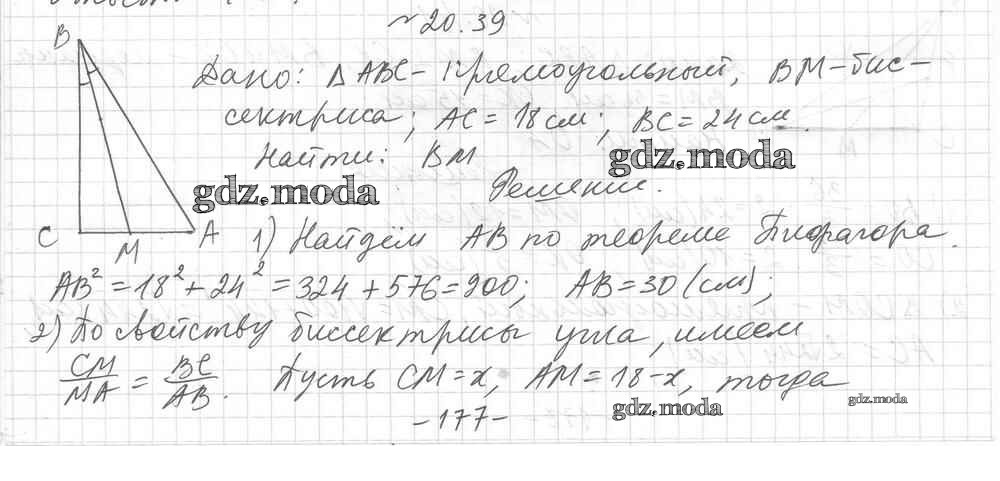 № 20.39
B
Дано: Δ ABC - прямоугольный, BM - бис-
сектриса; AC = 18 см; BC = 24 см.
Найти: BM
gdz.moda
gdz.moda
Решение.
C M A
1) Найдём AB по теореме Пифагора.
AB² = 18² + 24² = 324 + 576 = 900; AB = 30 (см);
2) По свойству биссектрисы угла, имеем
CM/MA = BC/AB. Пусть CM = x, AM = 18 - x, тогда
gdz.moda
gdz.moda
- 177 -